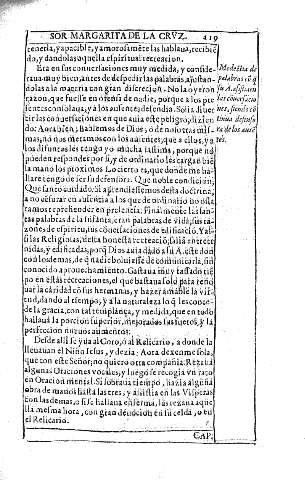 SOR MARGARITA DE LA CRVZ. 219
tenerla, y apacible, y amorosamēte las hablaua, recibiē
do, y dandolas aquella espiritual recreacion.
Era en sus conuersaciones muy medida, y conside-
raua muy bien, antes de despedir las palabras, ajustan-
dolas a la materia con gran discrecion. No la oyeron
razon, que fuesse en ofensa de nadie, porque a los pre
sentes consolaua, y a los ausentes defendia. Solia diuer
tir las conuersaciones en que auia este peligro, dizien
do: Aora bien, hablemos de Dios, ò de nosotras mis-
mas, no nos metamos con los ausentes, que a ellos, y a
los difuntos les tengo yo mucha lastima, porque no
pueden responder por si, y de ordinario les cargan biē
la mano los proximos. Lo cierto es, que donde me ha
llare tengo de ser su defensora. Que noble condicion!
Que santo cuidado! si aprendiessemos desta doctrina,
a no censurar en ausencia a los que de ordinario no osa
ramos reprehender en presencia. Finalmente las san-
tas palabras de la Infanta, eran palabras de vida, sus ra-
zones de espiritu, sus conuersaciones de edificacion. Y as-
si las Religiosas, desta honesta recreacion, salian entrete
nidas, y edificadas, porq̃ Dios auia dado a su A. este don
con los demas, de q̃ nadie boluiesse de comunicarla, sin
conocido aprouechamiento. Gastaua muy tassado tiē
po en estas recreaciones, el que bastaua solo para reno
uar la caridad cō sus hermanas, y hazer amable la vir-
tud, dando al tiempo, y a la naturaleza lo q̃ les conce-
de la gracia, con tal templança, y medida, que en todo
hallaua la porcion superior, mejorados los sujetos, y la
perfeccion nueuos aumentos.
Desde alli se yua al Coro, ò al Relicario, a donde la
lleuauan el Niño Iesus, y dezia: Aora dexenme sola,
que con este Señor, no quiero otra compañia. Rezaua
algunas Oraciones vocales, y luego se recogia vn rato
en Oracion mental. Si sobraua tiempo, hazia alguna
obra de manos hasta las tres, y assistia en las Visperas
con las demas, ò si se hallaua enferma, las rezaua aque
lla mesma hora, con gran deuocion en su celda, ò en
el Relicario.
CAP.
Modestia de
palabras cō q̃
su A. assistia a
las conuersacio
nes, siendo cō
tinua defenso
ra de los ausē
tes.